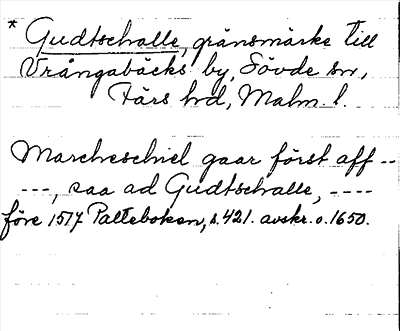 * Gudtschalle, gränsmärke till
Vrångabäcks by, Sövde sn,
Färs hd, Malm. l.
Marcheschiel gaar först aff --
---, saa ad Gudtschalle, ----
före 1517 Palteboken, s. 421. avskr. o. 1650.